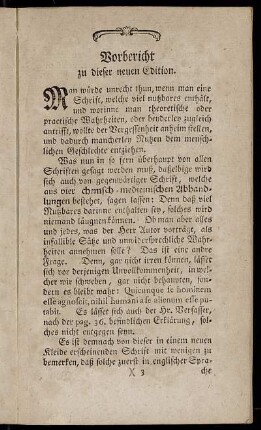 Vorbericht
zu dieser neuen Edition.
Man würde unrecht thun, wenn man eine
Schrift, welche viel nutzbares enthält,
und worinne man theoretische oder
practische Wahrheiten, oder beyderley zugleich
antrifft, wollte der Vergessenheit anheim stellen,
und dadurch mancherley Nutzen dem mensch-
lichen Geschlechte entziehen.
Was nun in so fern überhaupt von allen
Schriften gesagt werden muß, daßelbige wird
sich auch von gegenwärtiger Schrift, welche
aus vier chymisch-medicinischen Abhand-
lungen bestehet, sagen lassen: Denn daß viel
Nutzbares darinne enthalten sey, solches wird
niemand läugnen können. Ob man aber alles
und jedes, was der Herr Autor vorträgt, als
infallible Sätze und unwidersprechliche Wahr-
heiten annehmen solle? Das ist eine andre
Frage. Denn, gar nicht irren können, lässet
sich vor derjenigen Unvollkommenheit, in wel-
cher wir schweben, gar nicht behaupten, son-
dern es bleibt wahr: Quicunque se hominem
esse agnoscit, nihil humani a se alienum esse pu-
tabit. Es lässet sich auch der Hr. Verfasser,
nach der pag. 36. befindlichen Erklärung, sol-
ches nicht entgegen seyn.
Es ist demnach von dieser in einem neuen
Kleide erscheinenden Schrift mit wenigen zu
bemerken, daß solche zuerst in englischer Spra-
X 3 che